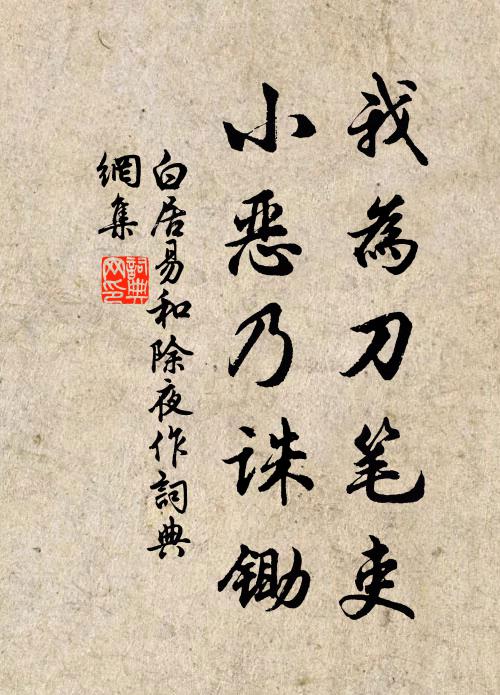 我為刀笔吏
小惡乃誅鋤
白居易和除夜作詞典
網集
詞典
网印